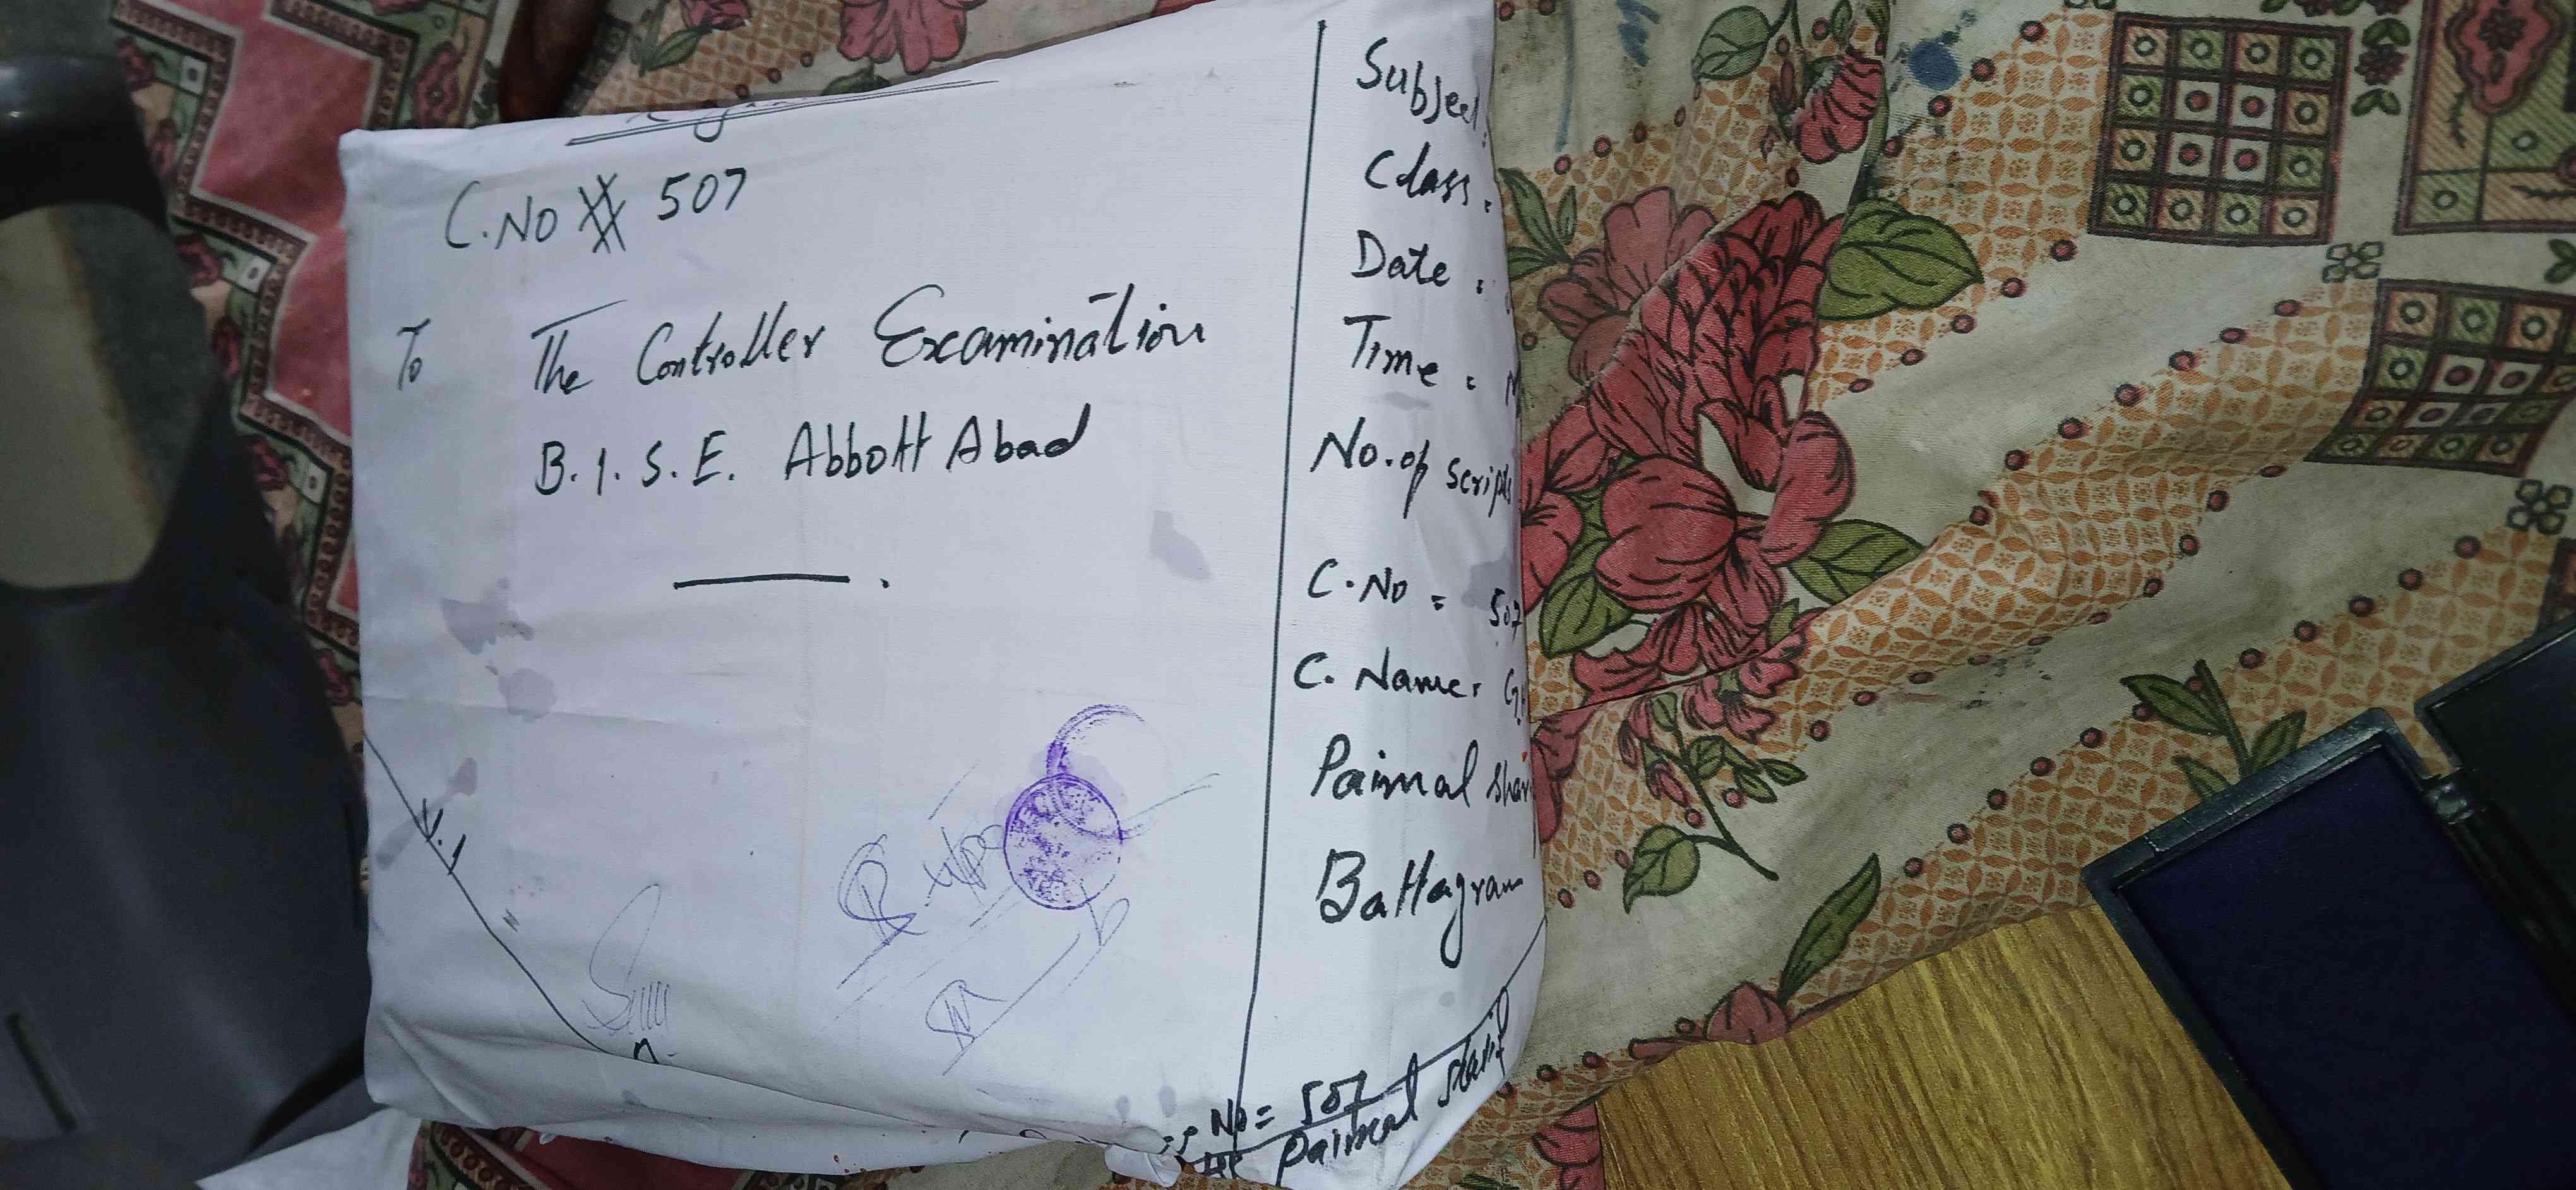 C.NO # 507
To The Controller Examination
B.I.S.E. Abbott Abad
Subject:
Class =
Date =
Time =
No. of scripts
C.No = 507
C. Name:
Paimal
Battagram
No = 507
Paimal sharif